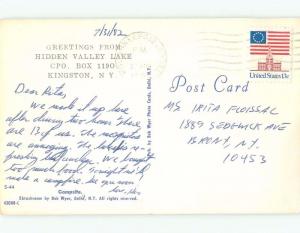 7/31/82
GREETINGS FROM
HIDDEN VALLEY LAKE
CPO. BOX 1190
KINGSTON, N.Y.
United States 13c
Post Card
Dear Rita,
We made it up here
after driving two hours. There
are 13 of us. The mosquitos
are annoying. The lake is re-
freshing though. We bought
too much food. Tonight we'll
make a campfire. See you soon
Love,
Ms IRITA FLOISSAL
1889 SEDGWICK AVE
BRONX, N.Y.
10453
S-44
Campsite.
63088-C
Ektachrome by Bob Wyer, Delhi, N.Y. All rights reserved.
Pub. by Bob Wyer Photo Cards, Delhi, N.Y.